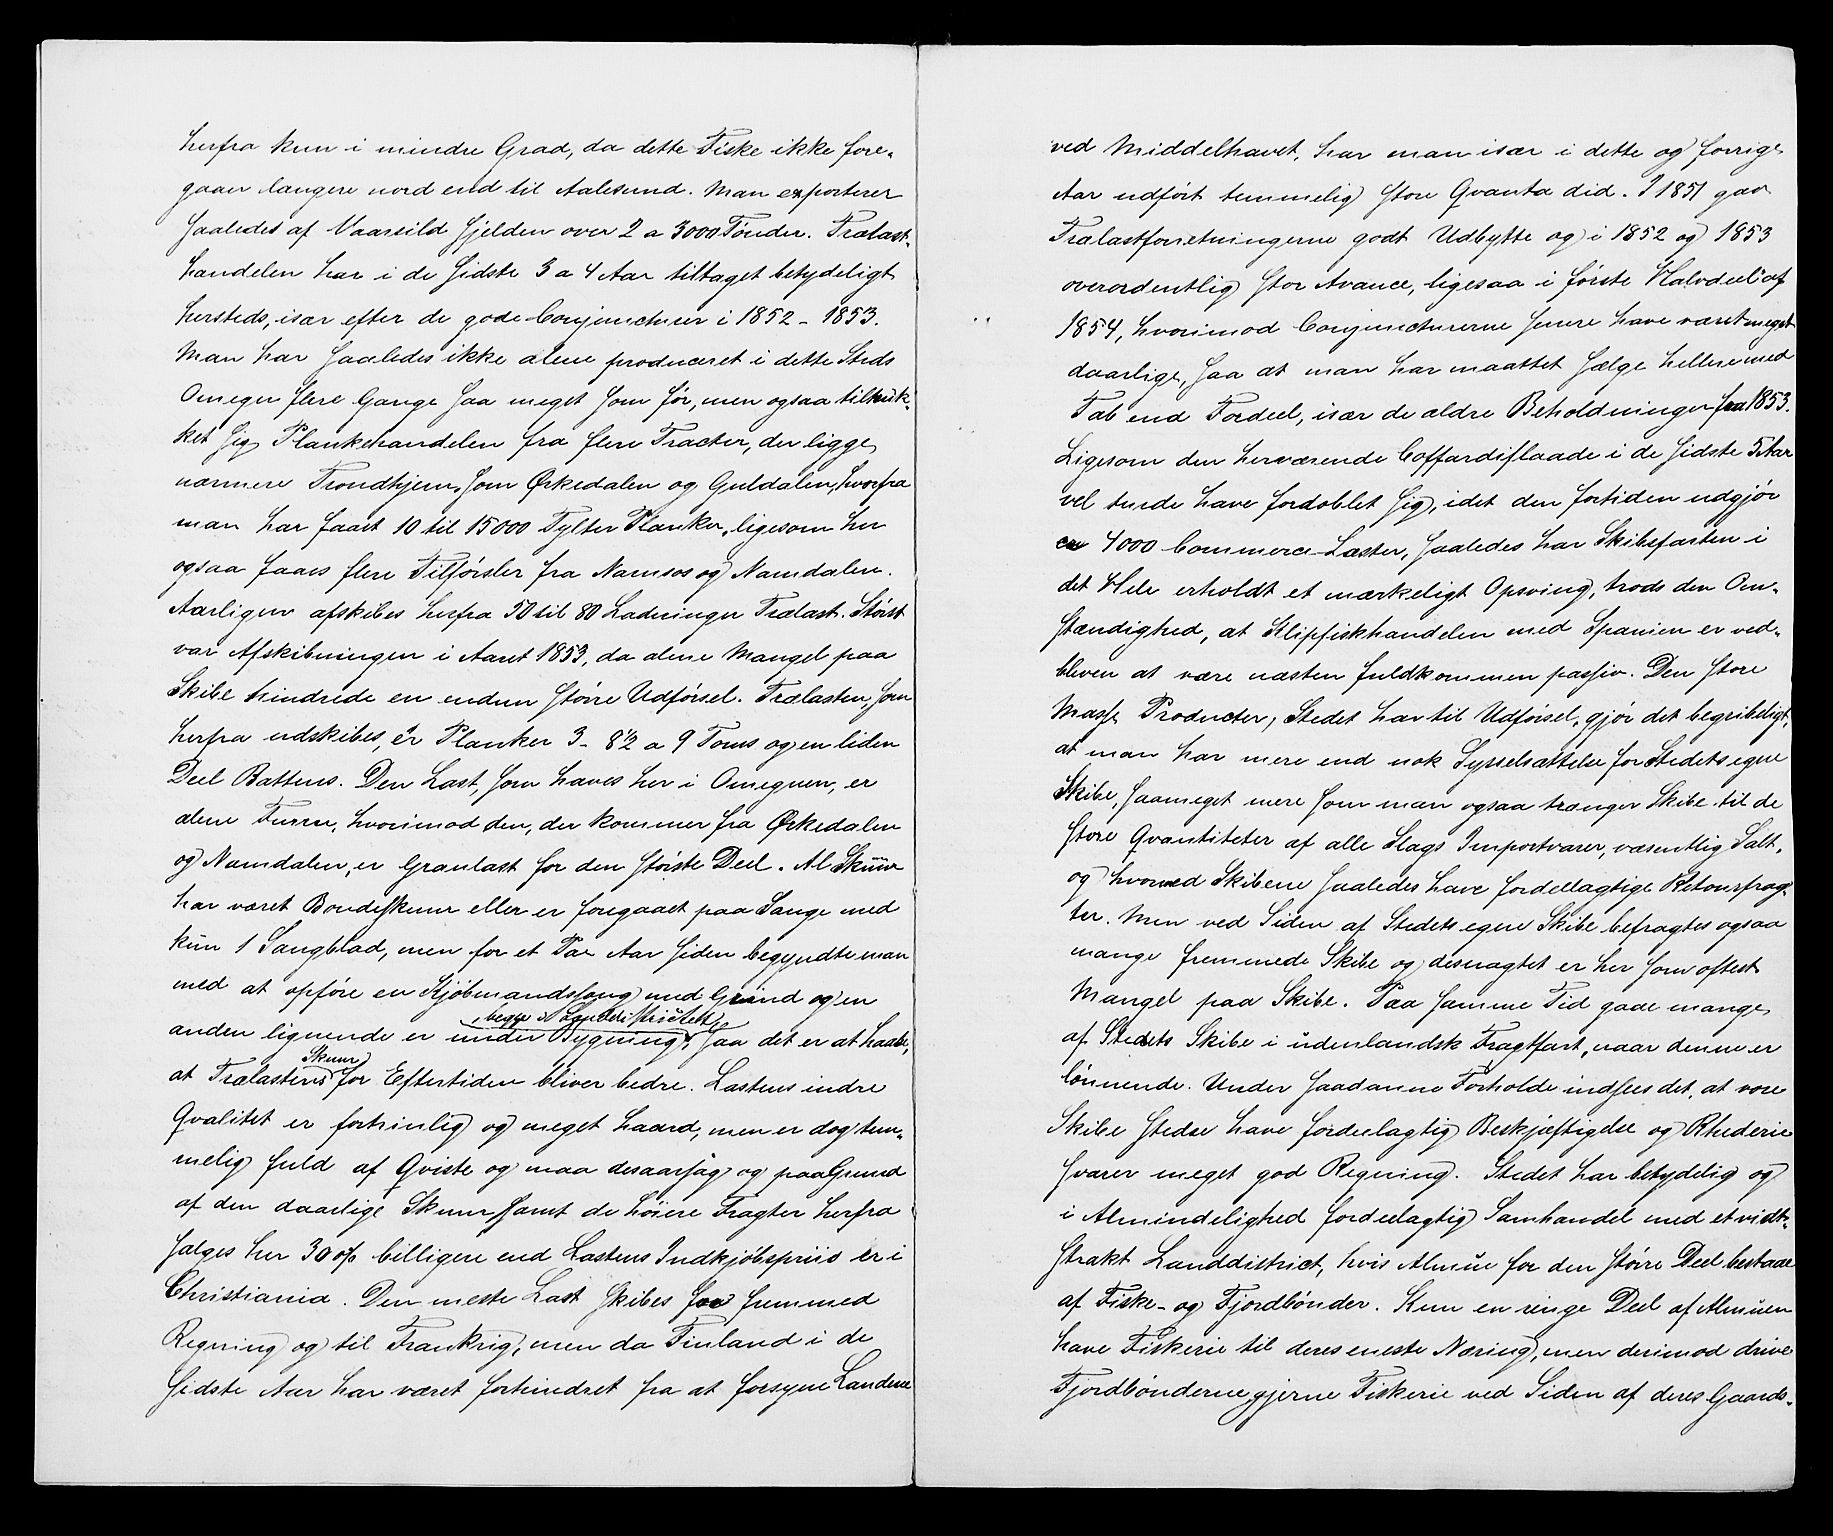 herfra kun i mindre Grad, da dette Fiske ikke fore-
gaaer længere nord end til Aalesund. Man exporterer
saaledes af Vaarsild sjelden over 2 a 3000 Tønder. Trælast-
handelen har i de sidste 3 a 4 Aar tiltaget betydeligt
hersteds, især efter de gode Conjuncturer i 1852 - 1853.
Man har saaledes ikke alene produceret i dette Steds
Omegn flere Gange saa meget som før, men ogsaa tiltruk-
ket sig Plankehandelen fra flere Tracter, der ligge
nærmere Trondhjem, som Ørkedalen og Guldalen, hvorfra
man har faaet 10 til 15000 Tylter Planker, ligesom her
ogsaa faaes flere Tilførsler fra Namsos og Namdalen.
Aarligen afskibes herfra 50 til 80 Ladninger Trælast. Størst
var Afskibningen i Aaret 1853, da alene Mangel paa
Skibe hindrede en endnu større Udførsel. Trælasten, som
herfra udskibes, er Planker 3 - 8½ a 9 Toms og en liden
Deel Battens. Den Last, som haves her i Omegnen, er
alene Furru, hvorimod den, der kommer fra Ørkedalen
og Namdalen, er Granlast for den største Deel. Al Skuur
har været Bondeskuur eller er foregaaet paa Sauge med
kun 1 Saugblad, men for et Par Aar siden begyndte man
med at opføre en Kjøbmandssaug med Grind og en
anden lignende er under Bygning, begge i Landdistrictet, saa det er at haabe,
at Trælastens Skuur for Eftertiden bliver bedre. Lastens indre
Qvalitet er fortrinlig og meget haard, men er dog tem-
melig fuld af Qviste og maa desaarsag og paa Grund
af den daarlige Skuur samt de høiere Fragter herfra
sælges her 30 o/o billigere end Lastens Indkjøbspriis er i
Christiania. Den meste Last skibes for fremmed
Regning og til Frankrig, men da Finland i de
sidste Aar har været forhindret fra at forsyne Landene
ved Middelhavet, har man især i dette og forrige
Aar udført temmelig store Qvanta did. I 1851 gav
Trælastforretningerne godt Udbytte og i 1852 og 1853
overordentlig stor Avance, ligesaa i første Halvdeel af
1854, hvorimod Conjuncturerne senere have været meget
daarlige, saa at man har maattet sælge hellere med
Tab end Fordeel, især de ældre Beholdninger fra 1853.
Ligesom den herværende Coffardiflaade i de sidste 5 Aar
vel turde have fordoblet sig, idet den fortiden udgjør
ca 4000 Commerce-Læster, saaledes har Skibsfarten i
det Hele erholdt et mærkeligt Opsving, trods den Om-
stændighed, at Klipfiskhandelen med Spanien er ved-
bleven at være næsten fuldkommen passiv. Den store
Masse Producter, Stedet har til Udførsel, gjør det begribeligt,
at man har mere end nok Sysselsættelse for Stedets egne
Skibe, saameget mere som man ogsaa trænger Skibe til de
store Qvantiteter af alle Slags Importvarer, væsentlig Salt,
og hvorved Skibene saaledes have fordelagtige Retourfrag-
ter. Men ved Siden af Stedets egne Skibe befragtes ogsaa
mange fremmede Skibe og desuagtet er her som oftest
Mangel paa Skibe. Paa samme Tid gaae mange
af Stedets Skibe i udenlandsk Fragtfart, naar denne er
lønnende. Under saadanne Forholde indsees det, at vore
Skibe stedse have fordeelagtig Beskjæftigelse og Rhederie
svarer meget god Regning. Stedet har betydelig og
i Almindelighed fordeelagtig Samhandel med et vidt-
strakt Landdistrict, hvis Almue for den større Deel bestaae
af Fiske- og Fjordbønder. Kun en ringe Deel af Almuen
have Fiskerie til deres eneste Næring, men derimod drive
Fjordbønderne gjerne Fiskerie ved Siden af deres Gaards-